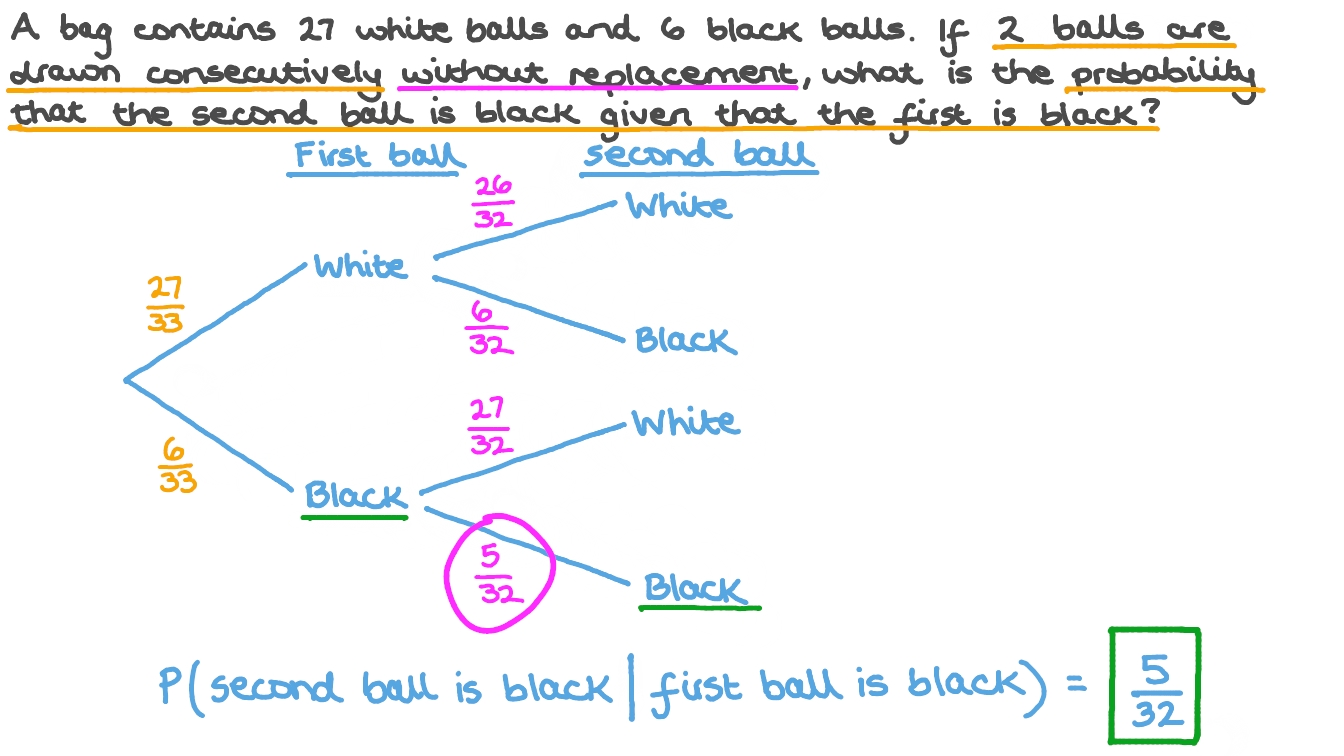 A bag contains 27 white balls and 6 black balls. If 2 balls are
drawn consecutively without replacement, what is the probability
that the second ball is black given that the first is black?
First ball second ball
26/32 White
27/33 White
6/32 Black
27/32 White
6/33 Black
5/32 Black
P(second ball is black | first ball is black) = 5/32